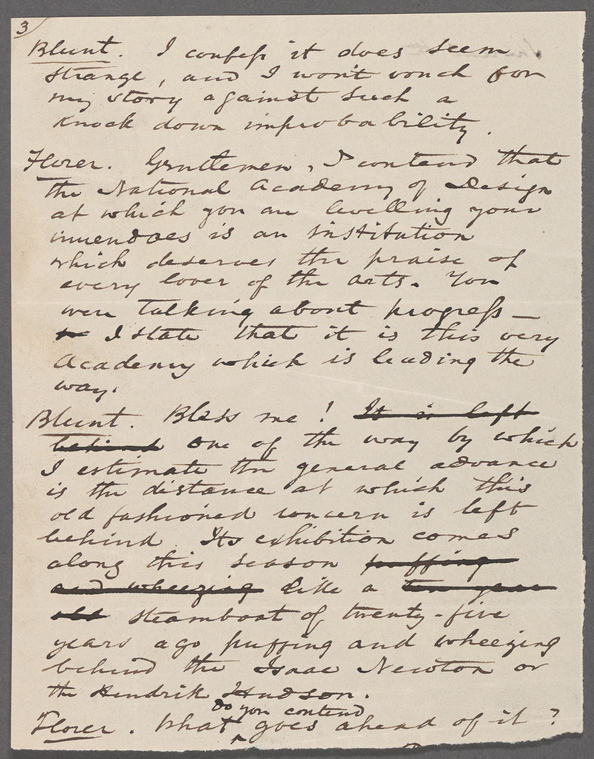 3
Blunt. I confess it does seem
strange, and I won't vouch for
my story against such a
knock down improbability.
Florer. Gentlemen, I contend that
the National Academy of Design
at which you are levelling your
inuendoes is an institution
which deserves the praise of
every lover of the arts. You
were talking about progress—
I state that it is this very
Academy which is leading the
way.
Blunt. Bless me! It is left
behind One of the way by which
I estimate the general advance
is the distance at which this
old fashioned concern is left
behind. Its exhibition comes
along this season puffing
and wheezing like a ten year
old steamboat of twenty-five
years ago puffing and wheezing
behind the Isaac Newton or
the Hendrik Hudson.
do you contend
Florer. What goes ahead of it?